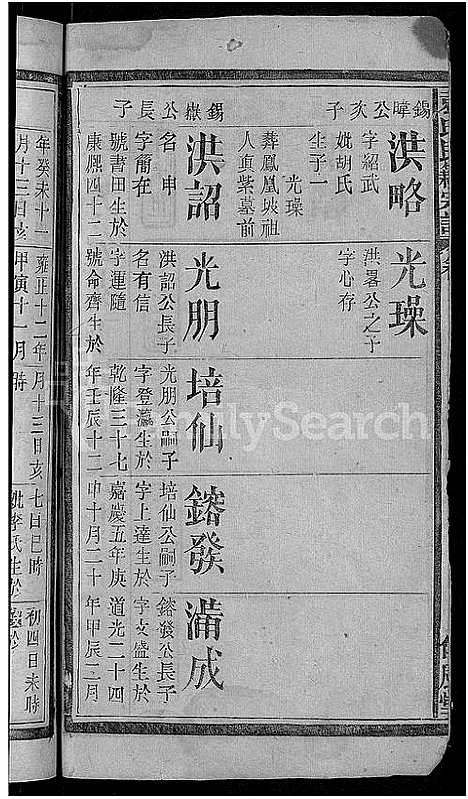 錫暐公次子
洪略
字紹武
妣胡氏
生子一
光璪
葬鳳凰坱祖
人貞柴墓前
光璪
洪畧公之子
字心存
錫嶽公長子
洪詔
名申
字簡在
號書田生於
康熙四十二
光朋
洪詔公長子
名有信
字運隨
號命齊生於
培仙
光朋公嗣子
字登瀛生於
乾隆三十七
年壬辰十二
鎔發
培仙公嗣子
字上達生於
嘉慶五年庚
申十月二十
滿成
鎔發公長子
字文盛生於
道光二十四
年甲辰二月
年癸未十一
月十三日亥
雍正十二年
甲寅十一月
月十三日亥
時
七日巳時
妣李氏生於
初四日未時
FamilySearch